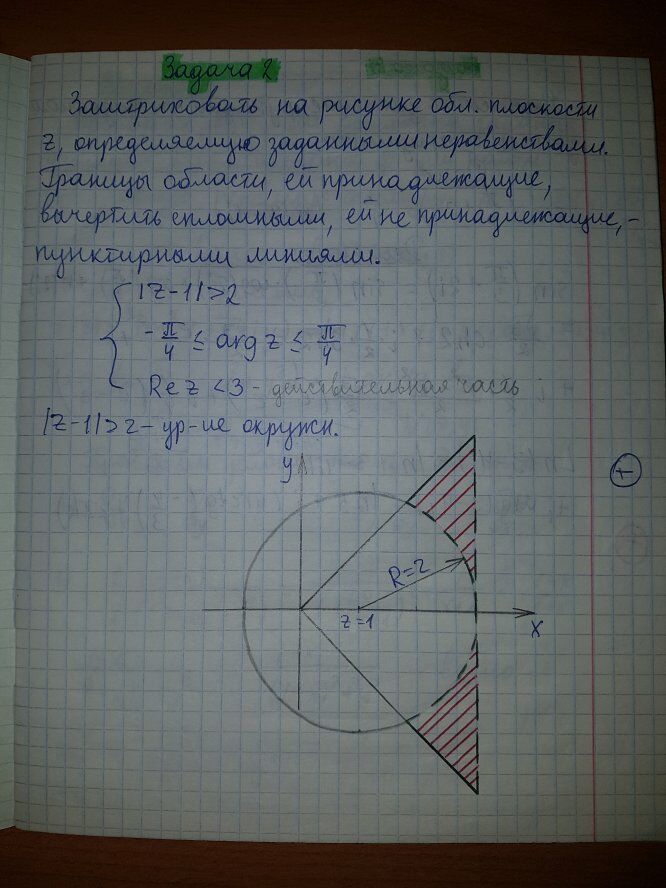 Задача 2
Заштриховать на рисунке обл. плоскости
z, определяемую заданными неравенствами.
Границы области, ей принадлежащие,
вычертить сплошными, ей не принадлежащие, -
пунктирными линиями.
|z-1|>2
-π/4 ≤ arg z ≤ π/4
Re z < 3 - действительная часть
|z-1|>2 - ур-ие окружн.
y
+
R=2
z=1
x